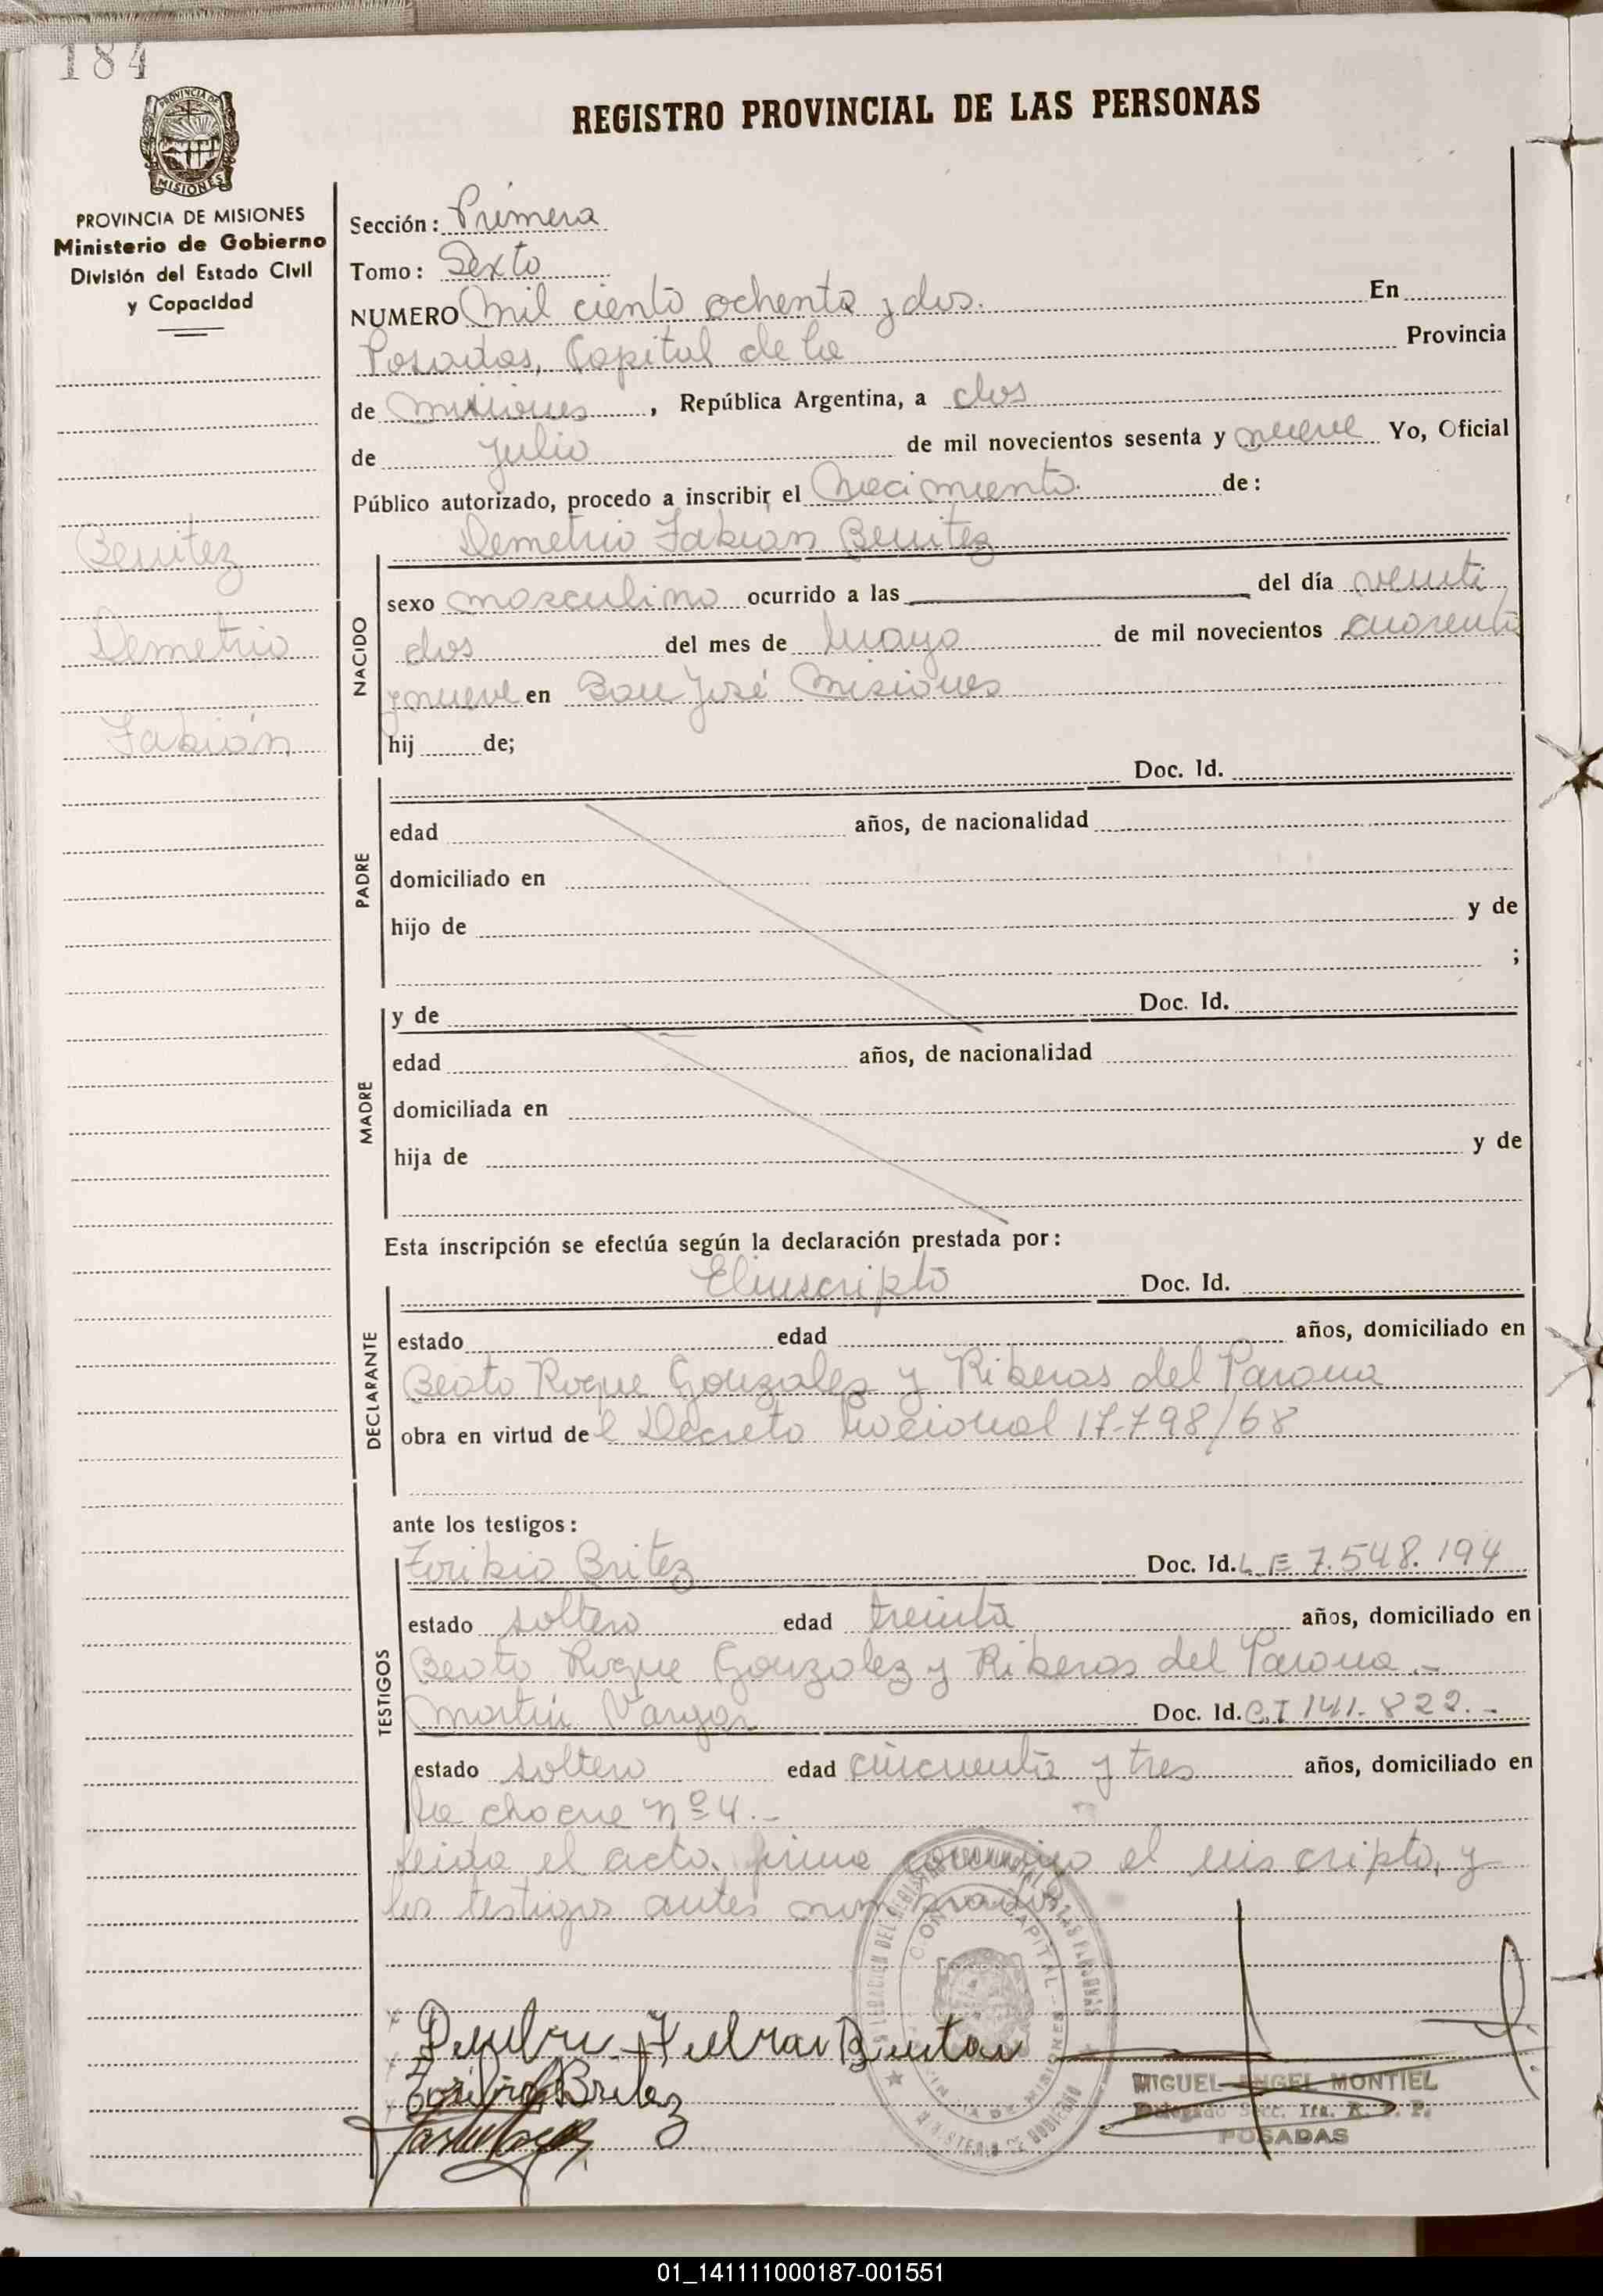 184
REGISTRO PROVINCIAL DE LAS PERSONAS
PROVINCIA DE MISIONES
Ministerio de Gobierno
División del Estado Civil
y Capacidad
Benitez
Demetrio
Fabián
Sección: Primera
Tomo: Sexto
NUMERO Mil ciento ochenta y dos. En
Posadas, Capital de la Provincia
de Misiones, República Argentina, a dos
de Julio de mil novecientos sesenta y nueve Yo, Oficial
Público autorizado, procedo a inscribir el Nacimiento. de:
Demetrio Fabian Benitez
NACIDO
sexo masculino ocurrido a las del día veinti
dos del mes de Mayo de mil novecientos cuarenta
y nueve en San José Misiones
hij de;
PADRE
Doc. Id.
edad años, de nacionalidad
domiciliado en
hijo de y de
;
MADRE
y de Doc. Id.
edad años, de nacionalidad
domiciliada en
hija de y de
Esta inscripción se efectúa según la declaración prestada por:
DECLARANTE
El inscripto Doc. Id.
estado edad años, domiciliado en
Beato Roque Gonzalez y Riberas del Parana
obra en virtud de l Decreto Nacional 17.798/68
ante los testigos:
TESTIGOS
Toribio Britez Doc. Id. L E 7.548.194
estado soltero edad treinta años, domiciliado en
Beato Roque Gonzalez y Riberas del Parana.-
Martin Vargas Doc. Id. C.I 141.822.-
estado soltero edad cincuenta y tres años, domiciliado en
La chacra Nº 4.-
Leida el acta, firma conmigo el inscripto, y
los testigos antes nombrados
Toribio Britez
MIGUEL ANGEL MONTIEL
Delegado Secc. 1ra. R. P. P.
POSADAS
01_141111000187-001551